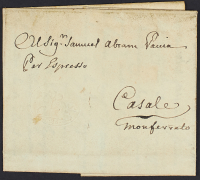 Al Sig.r Samuel Abram Pavia
Per Espresso
Casale
Monferrato